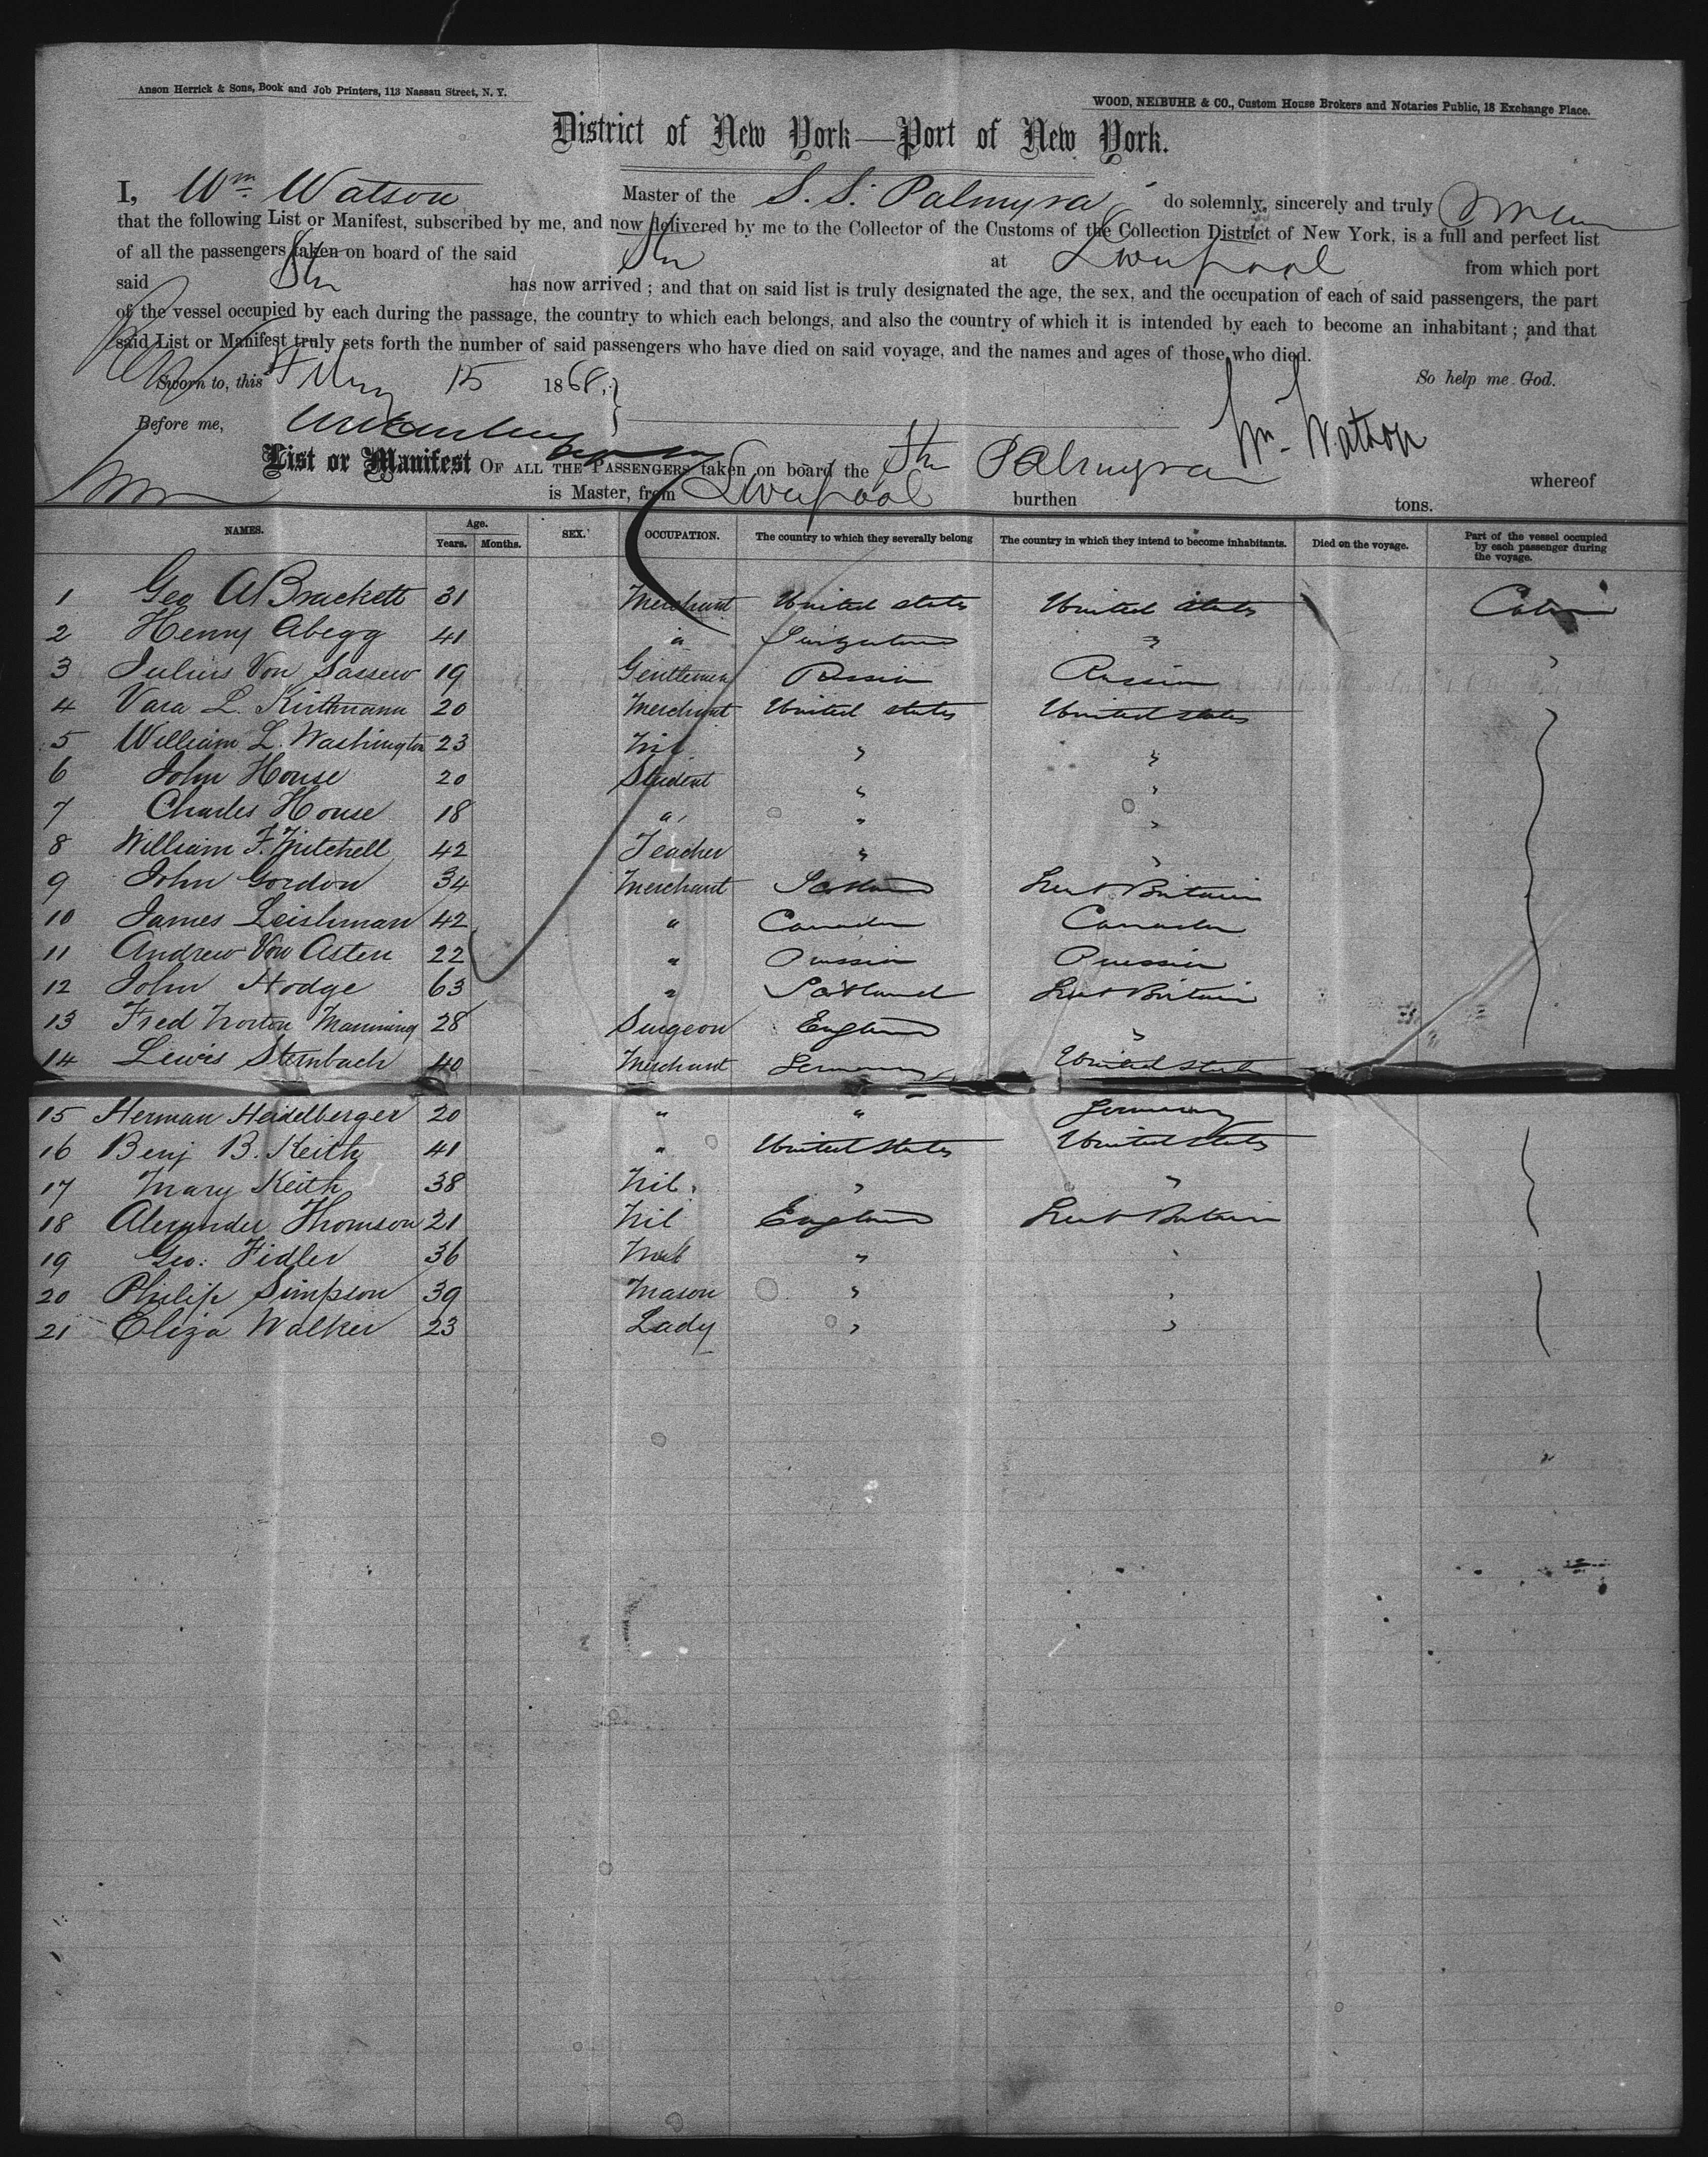 Anson Herrick & Sons, Book and Job Printers, 113 Nassau Street, N. Y.
WOOD, NEIBUHR & CO., Custom House Brokers and Notaries Public, 18 Exchange Place.
District of New York—Port of New York.
I, Wm Watson Master of the S. S. Palmyra do solemnly, sincerely and truly
that the following List or Manifest, subscribed by me, and now delivered by me to the Collector of the Customs of the Collection District of New York, is a full and perfect list
of all the passengers taken on board of the said Str at Liverpool from which port
said Str has now arrived; and that on said list is truly designated the age, the sex, and the occupation of each of said passengers, the part
of the vessel occupied by each during the passage, the country to which each belongs, and also the country of which it is intended by each to become an inhabitant; and that
said List or Manifest truly sets forth the number of said passengers who have died on said voyage, and the names and ages of those who died.
Sworn to, this 15 1868, So help me God.
Before me, Wm Watson
List or Manifest OF ALL THE PASSENGERS taken on board the Str Palmyra whereof
is Master, from Liverpool burthen tons.
NAMES. Age. Years. Months. SEX. OCCUPATION. The country to which they severally belong The country in which they intend to become inhabitants. Died on the voyage. Part of the vessel occupied by each passenger during the voyage.
1 Geo A Brackett 31 Merchant United States United States Cabin
2 Henry Abegg 41 " Switzerland "
3 Julius Von Sassew 19 Gentleman Russia Russia
4 Vara L. Kirthmann 20 Merchant United States United States
5 William L. Washington 23 Nil " "
6 John House 20 Student " "
7 Charles House 18 " " "
8 William F. Mitchell 42 Teacher " "
9 John Gordon 34 Merchant Scotland Great Britain
10 James Leishman 42 " Canada Canada
11 Andrew Von Asten 22 " Prussia Prussia
12 John Hodge 63 " Scotland Great Britain
13 Fred Norton Manning 28 Surgeon England "
14 Lewis Sternbach 40 Merchant Germany United States
15 Herman Heidelberger 20 " " Germany
16 Benj B. Keith 41 " United States United States
17 Mary Keith 38 Nil. " "
18 Alexander Thomson 21 Nil England Great Britain
19 Geo: Fidler 36 " "
20 Philip Simpson 39 Mason " "
21 Eliza Walker 23 Lady " "